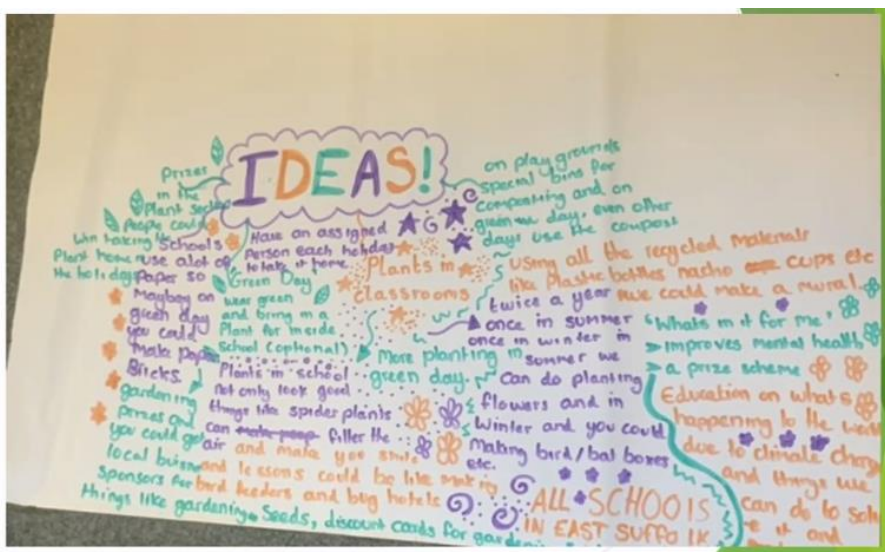 IDEAS!
Prizes
in the
Plant section
People could
win taking the
Plant home
the holidays
Schools
use a lot of
Paper so
Maybey on
green day
you could
Make paper
Bricks
gardening
prizes and
you could get
local buisness
sponsors for
things like gardening. Seeds, discount cards for
Have an assigned
Person each holiday
to take it home
Green Day
wear green
and bring in a
Plant for inside
school (optional)
Plants in school
not only look good
things like spider plants
can filter the
air and make you smile
and lessons could be like making
bird feeders and bug hotels
Plants in
classrooms
More planting in
green day.
on play grounds
special bins for
composting and on
green day, even other
days use the compost
using all the recycled Materials
like Plastic bottles nacho cups etc
we could make a mural.
twice a year
once in summer
once in winter in
summer we
can do planting
flowers and in
winter and you could
Making bird/bat boxes
etc.
"Whats in it for me"
improves mental health
a prize scheme
Education on whats
happening to the
due to climate
and things we
can do to
it and
ALL SCHOOLS
IN EAST SUFFOLK